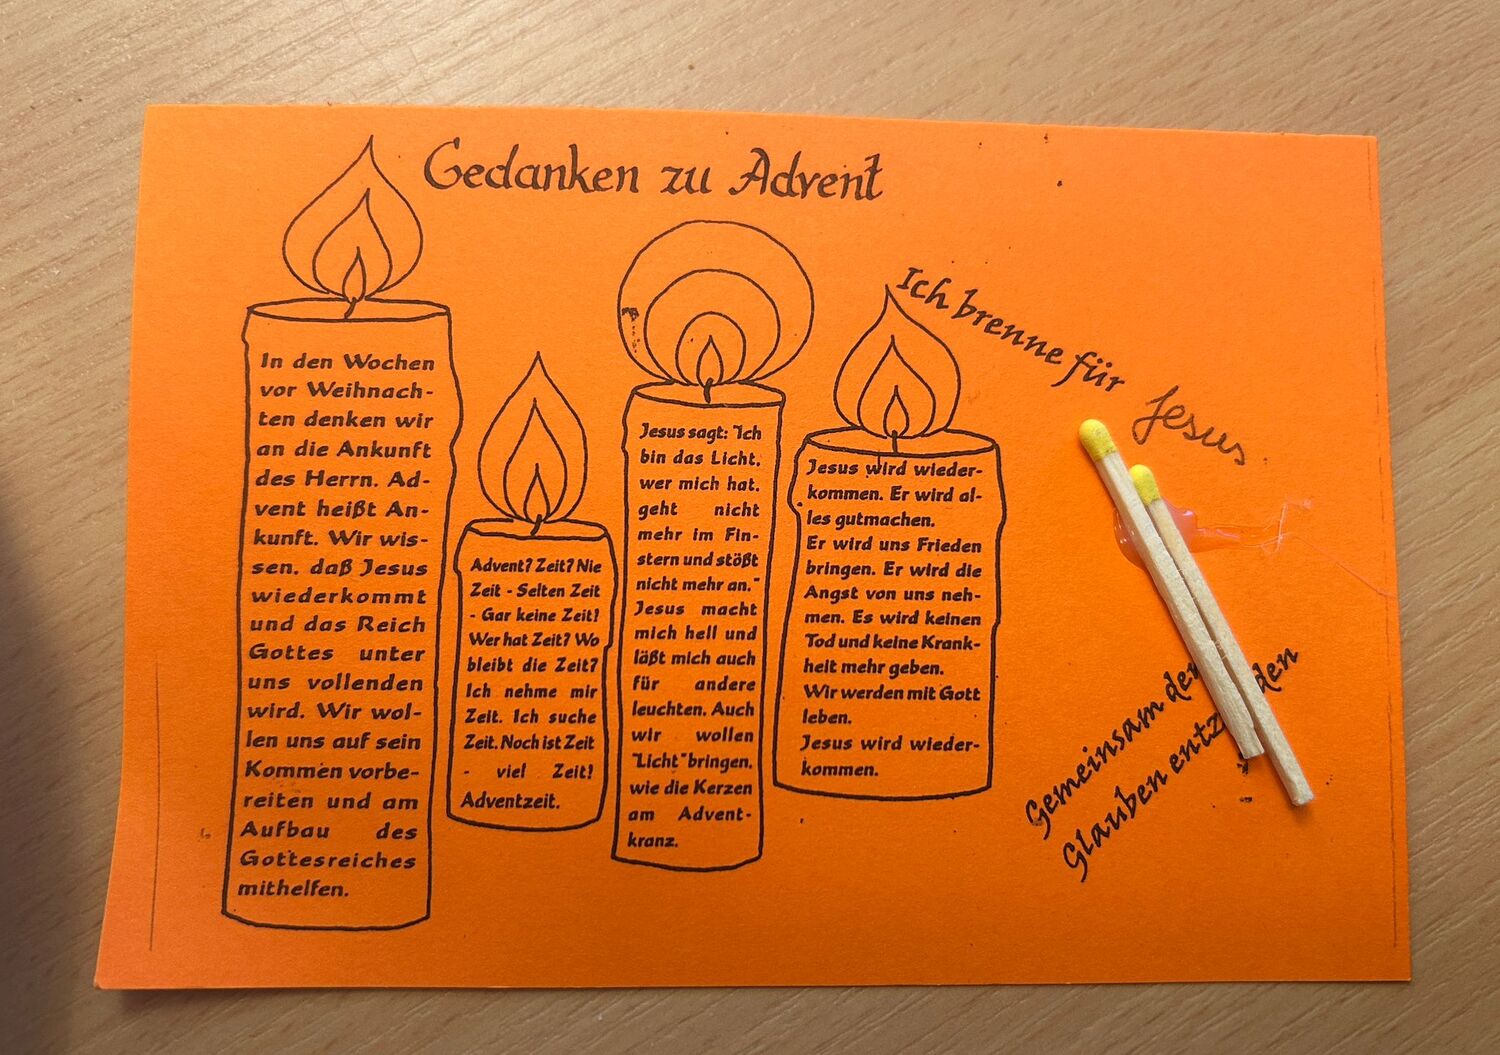 Gedanken zu Advent
In den Wochen
vor Weihnach-
ten denken wir
an die Ankunft
des Herrn. Ad-
vent heißt An-
kunft. Wir wis-
sen, daß Jesus
wiederkommt
und das Reich
Gottes unter
uns vollenden
wird. Wir wol-
len uns auf sein
Kommen vorbe-
reiten und am
Aufbau des
Gottesreiches
mithelfen.
Advent? Zeit? Nie
Zeit - Selten Zeit
- Gar keine Zeit!
Wer hat Zeit? Wo
bleibt die Zeit?
Ich nehme mir
Zeit. Ich suche
Zeit. Noch ist Zeit
- viel Zeit!
Adventzeit.
Jesus sagt: "Ich
bin das Licht,
wer mich hat,
geht nicht
mehr im Fin-
stern und stößt
nicht mehr an."
Jesus macht
mich hell und
läßt mich auch
für andere
leuchten. Auch
wir wollen
"Licht" bringen,
wie die Kerzen
am Advent-
kranz.
Jesus wird wieder-
kommen. Er wird al-
les gutmachen.
Er wird uns Frieden
bringen. Er wird die
Angst von uns neh-
men. Es wird keinen
Tod und keine Krank-
heit mehr geben.
Wir werden mit Gott
leben.
Jesus wird wieder-
kommen.
Ich brenne für Jesus
Gemeinsam den
Glauben entz den